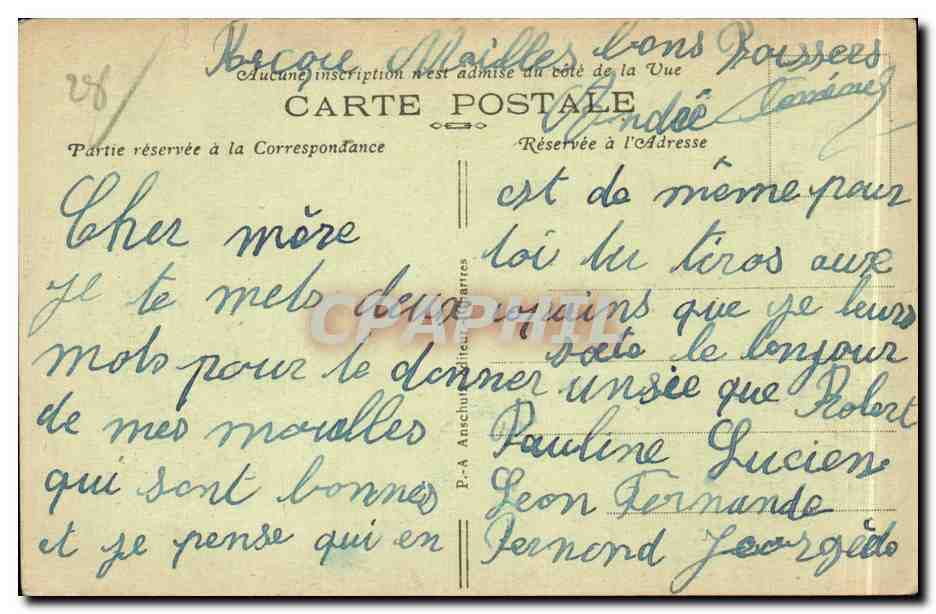 28
Reçoie Mailles bons Baissers
Aucune inscription n'est admise du côté de la Vue
CARTE POSTALE
Andée
Partie réservée à la Correspondance
Réservée à l'Adresse
Cher mère
je te mets deux
mots pour te donner
de mes nouvelles
qui sont bonnes
et je pense qui en
est de même pour
toi tu tiros aux
que je leurs
le bonjour
que Robert
Pauline Lucien
Leon Fernande
Fernond
P.-A Anschutz Editeur Chartres
CPAPHIL